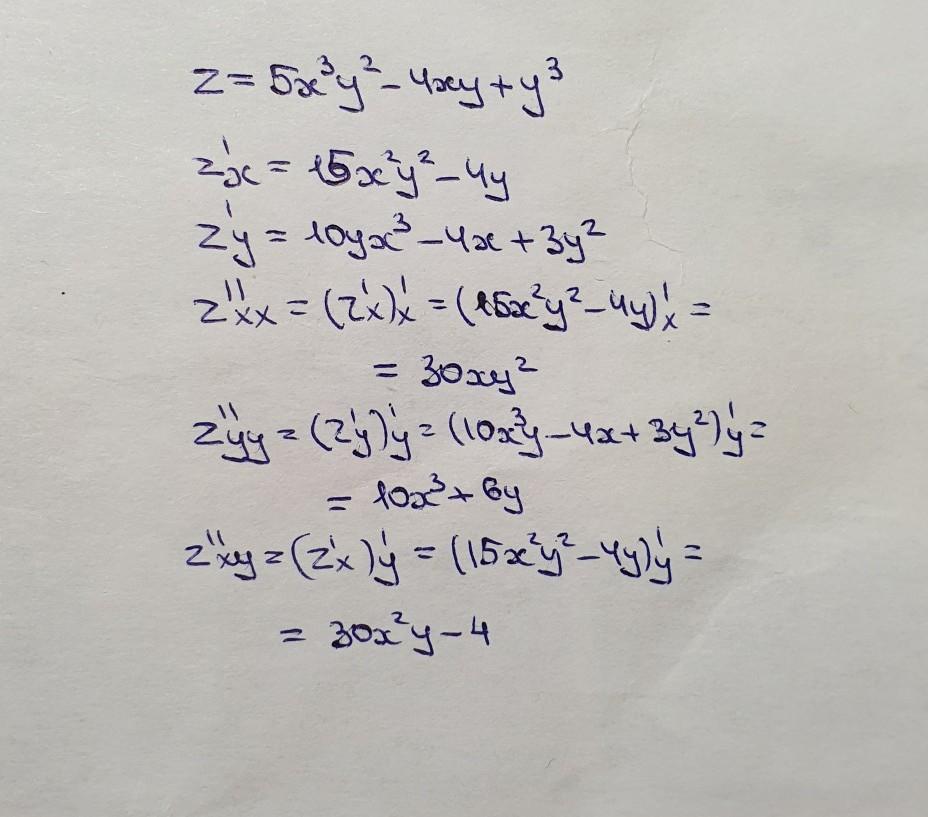 z = 5x³y² - 4xy + y³
z'x = 15x²y² - 4y
z'y = 10yx³ - 4x + 3y²
z''xx = (z'x)'x = (15x²y² - 4y)'x =
= 30xy²
z''yy = (z'y)'y = (10x³y - 4x + 3y²)'y =
= 10x³ + 6y
z''xy = (z'x)'y = (15x²y² - 4y)'y =
= 30x²y - 4